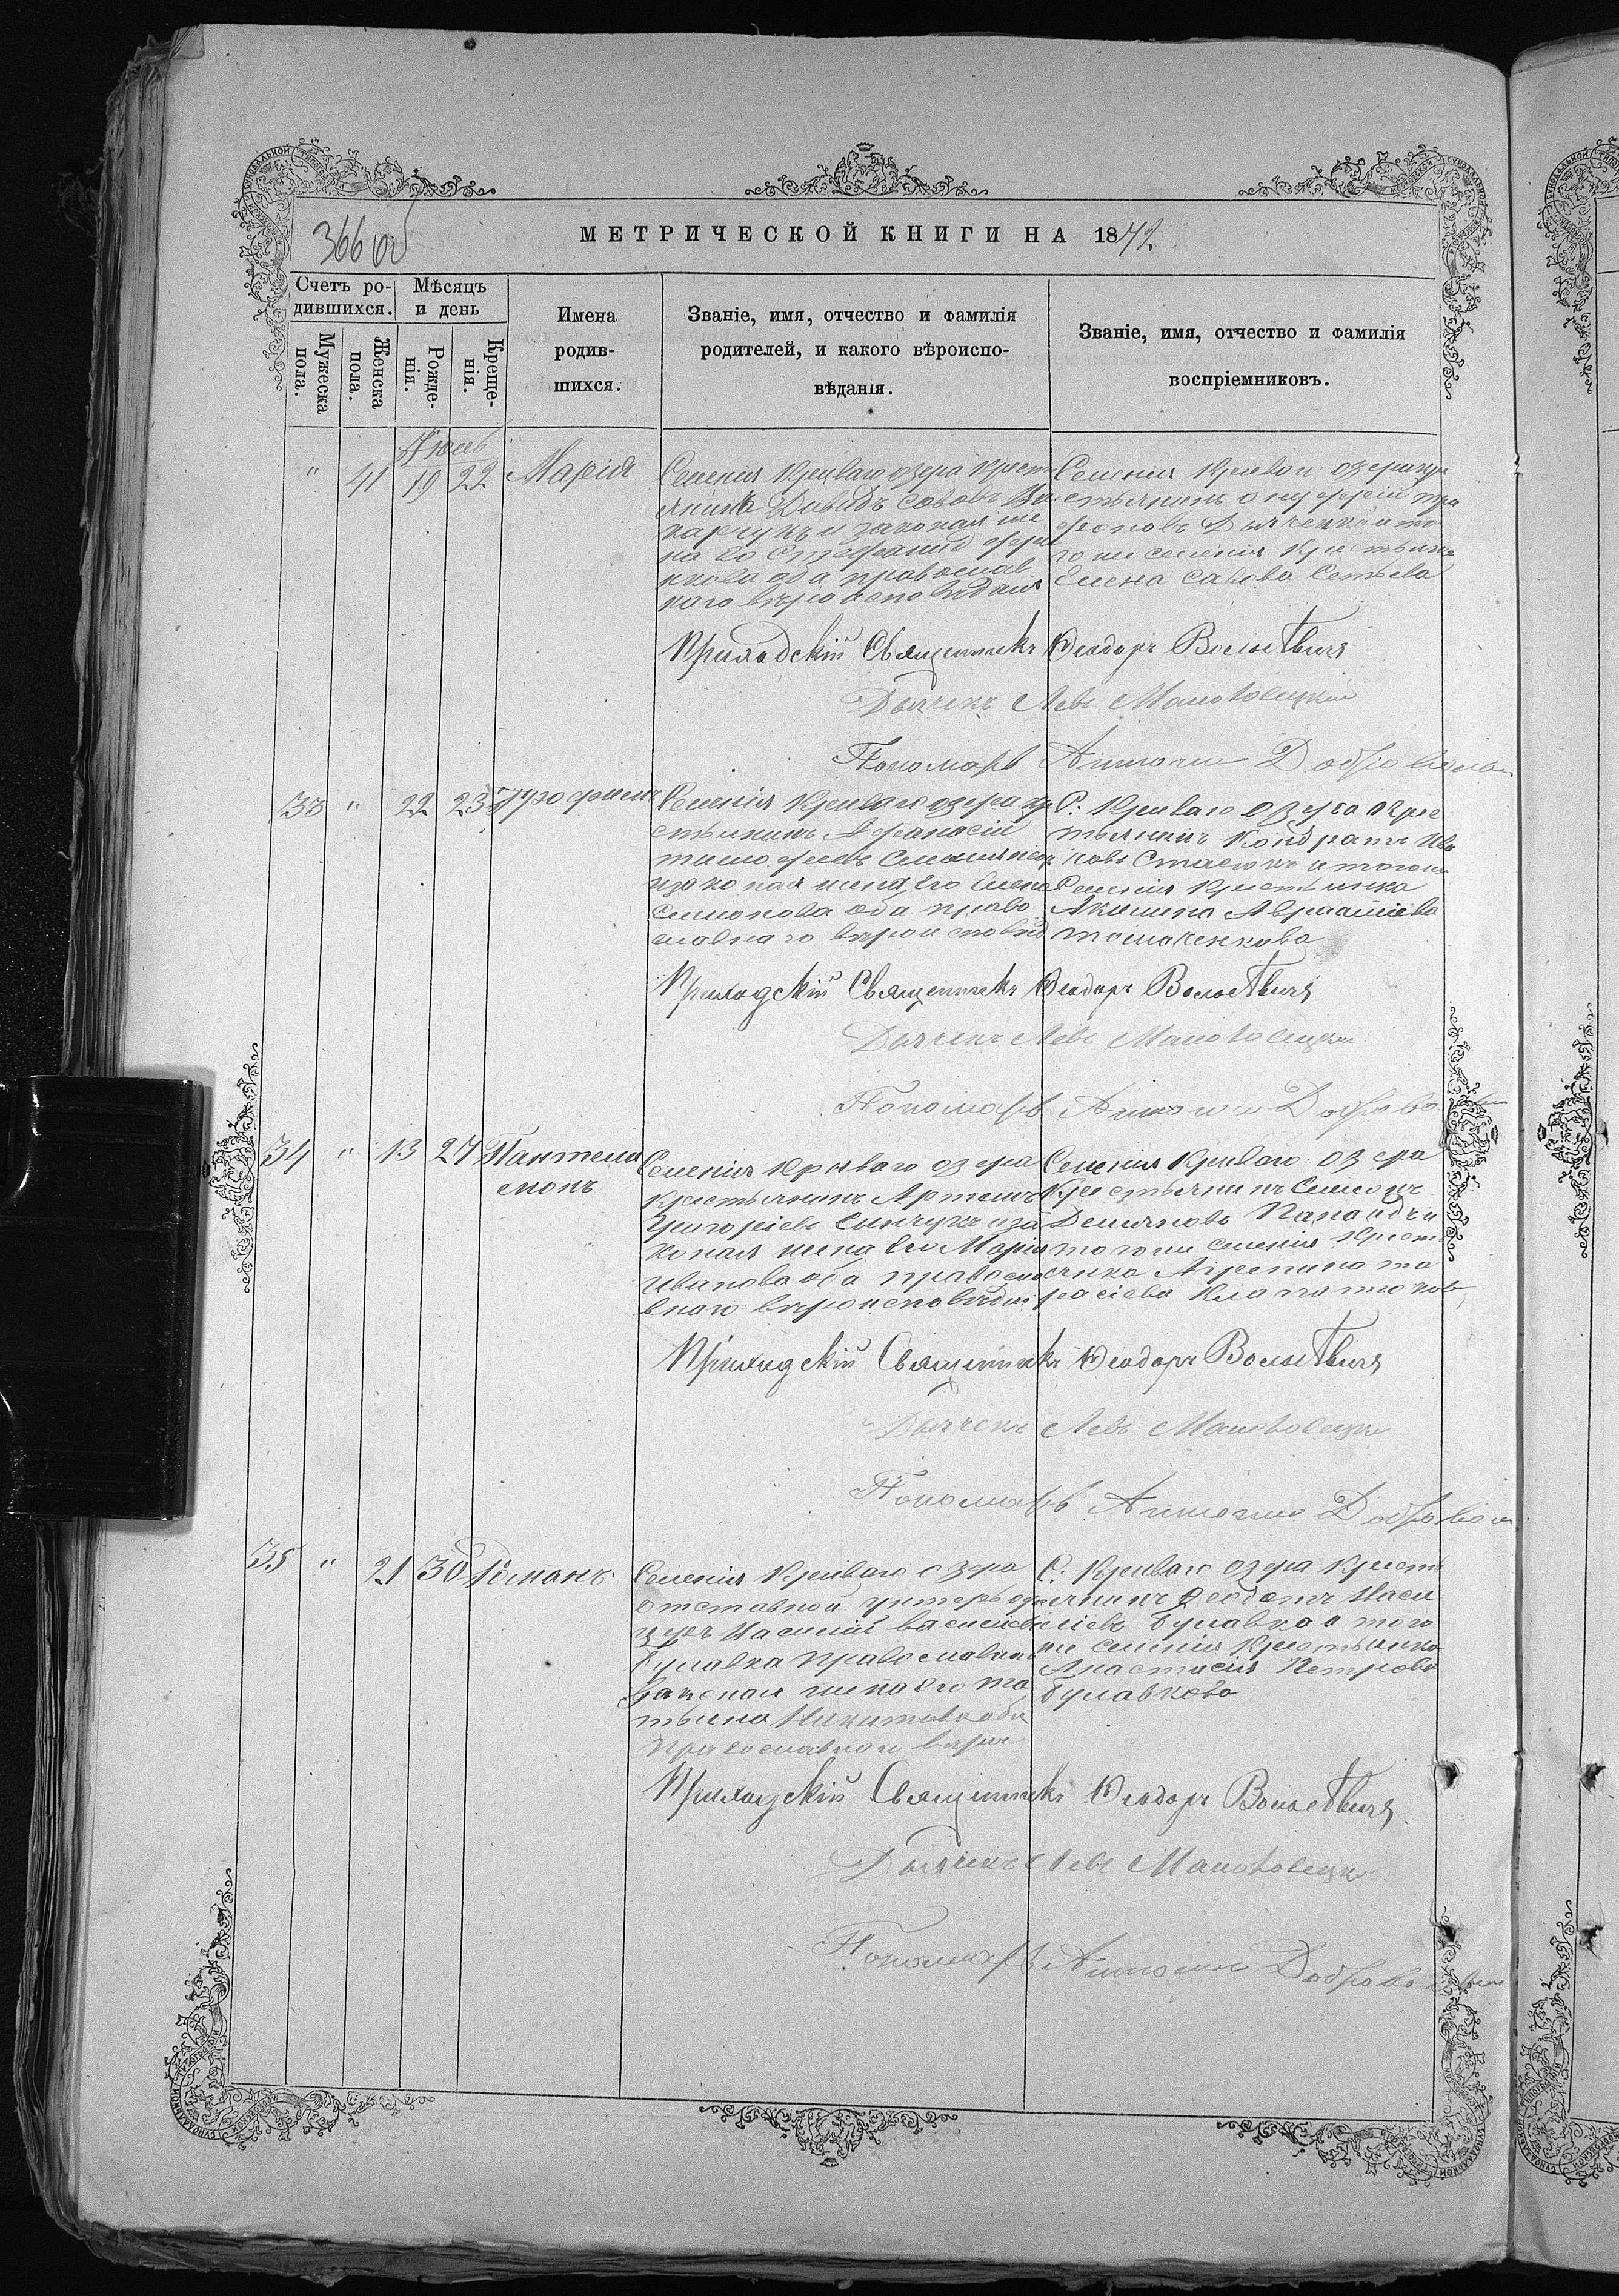 366 об
МЕТРИЧЕСКОЙ КНИГИ НА 1872
Счетъ ро-
дившихся.
Мѣсяцъ
и день
Мужеска
пола.
Женска
пола.
Рожде-
нія.
Креще-
нія.
Имена
родив-
шихся.
Званіе, имя, отчество и фамилія
родителей, и какого вѣроиспо-
вѣданія.
Званіе, имя, отчество и фамилія
воспріемниковъ.
Іюль
" 41 19 22 Марія
Селенія Криваго озера крест
янинъ Давидъ Савовъ
и законая же
на его Стефанида
оба православ
наго вѣроисповѣданія
Селенія Криваго озера кре
стьянинъ Онуфрій Тра
фоновъ Дьяченко и то
го же селенія крестьянка
Елена Савова
Приходскій Священникъ Ѳеодоръ
Дьячекъ Левъ
Пономарь Антоній
33 " 22 23 Трофимъ
Селенія Криваго озера кр
стьянинъ Афанасій
Тимофеевъ
и законая жена его Елена
Семионова оба право
славнаго вѣроисповѣд
С: Криваго озера крес
тьянинъ Кондратъ Ива
новъ Стасюкъ и тогоже
Селенія крестьянка
Акилина Авраамиева
Приходскій Священникъ Ѳеодоръ
Дьячекъ Левъ
Пономарь Антоній
34 " 13 27 Пантелеи
монъ
Селенія Криваго озера
крестьянинъ Артемъ
Григоріевъ и за
коная жена его Марія
Иванова оба правосла
внаго вѣроисповѣдан
Селенія Криваго озера
Крестьянинъ Семіонъ
Демяновъ и
тогоже селенія крест
янка Агрепина та
расіева
Приходскій Священникъ Ѳеодоръ
Дьячекъ Левъ
Пономарь Антоній
35 " 21 30 Романъ
Селенія Криваго озера
отставной унтеръ офи
церъ Василій Василіевъ
Булавка православной
законая жена его Та
тьяна Никитова оба
православной вѣры
С: Криваго озера крест
янинъ Ѳеодотъ Васи
ліевъ Булавка и того
же селенія крестьянка
Анастасія Петрова
Булавкова
Приходскій Священникъ Ѳеодоръ
Дьячекъ Левъ
Пономарь Антоній